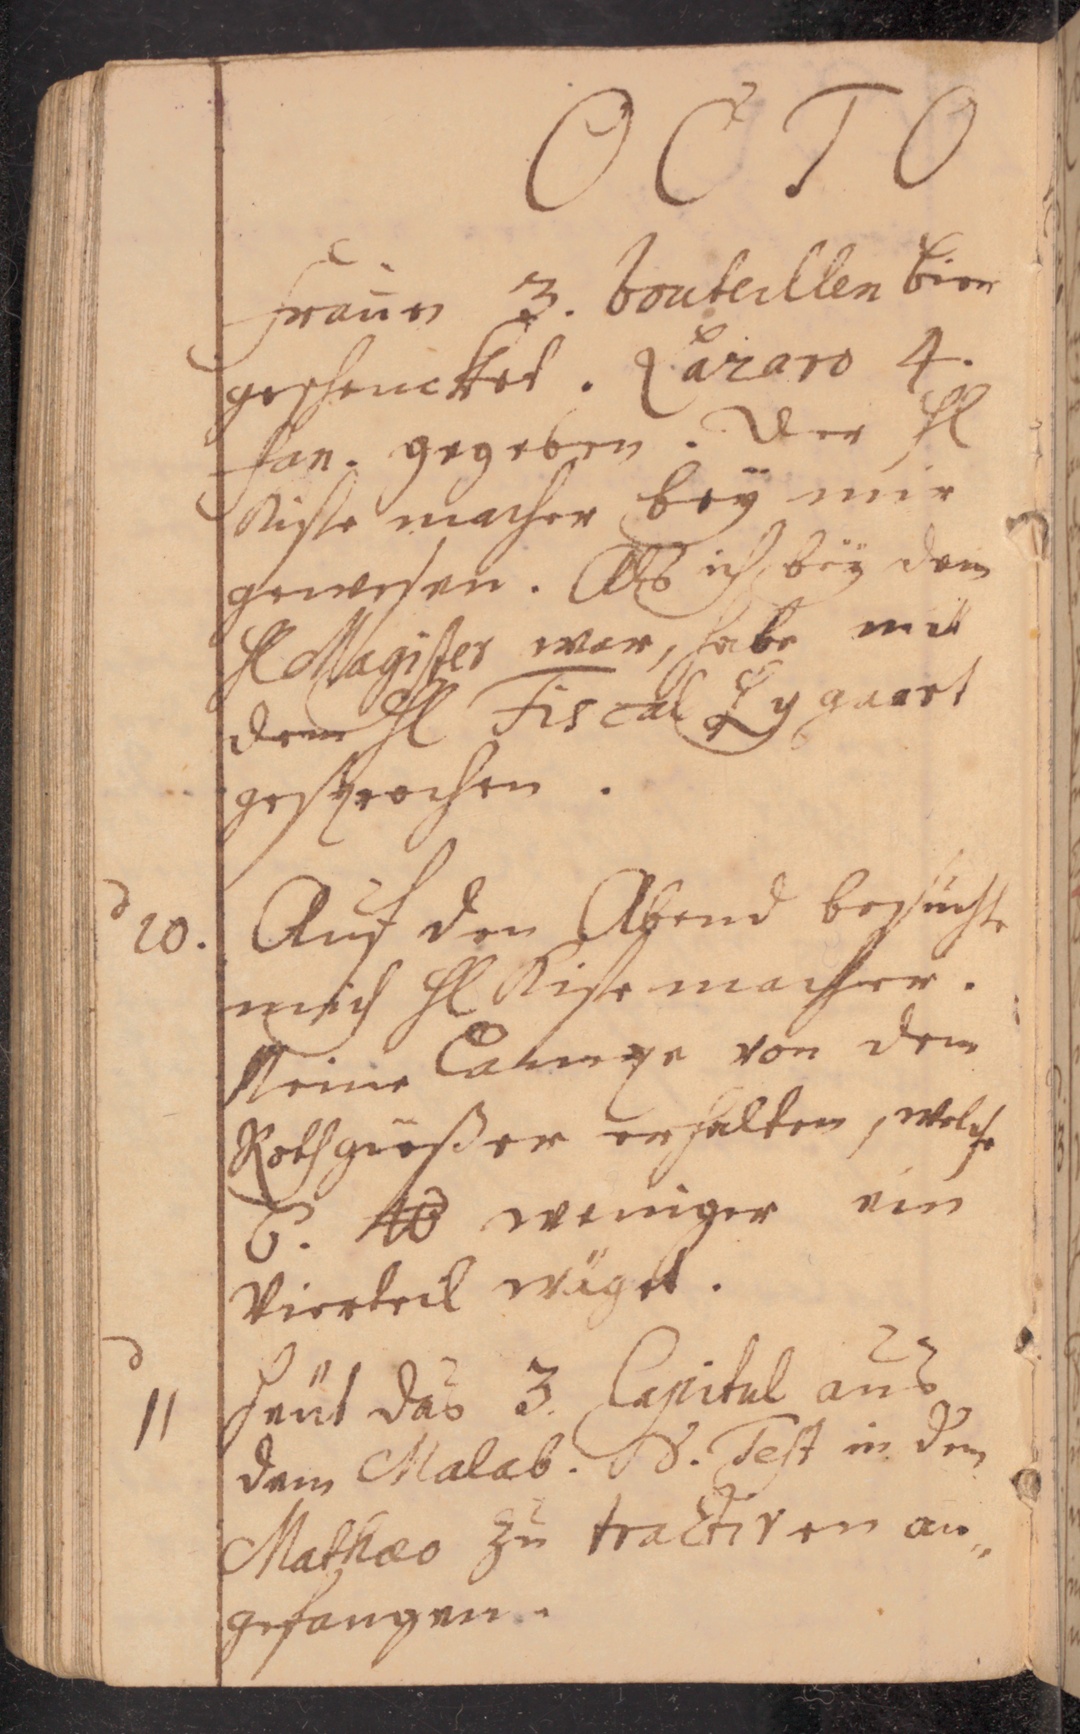 OCTO
Frauen 3. bouteillen bier
geschencket. Lazaro 4.
fan. gegeben. Der Hl
Kistemacher bey mir
gewesen. Als ich bey dem
Hl Magister war, habe mit
dem Hl Fiscal Lygaart
gesprochen.
d 10. Auf den Abend besuchte
mich Hl Kistemacher.
Meine Lampe von dem
Rothgießer erhalten, welche
6. ℔ weniger ein
Vierteil wäget.
d 11 Heüt das 3. Capitul aus
dem Malab. N. Test in dem
Mathæo zu tractiren an„
gefangen.